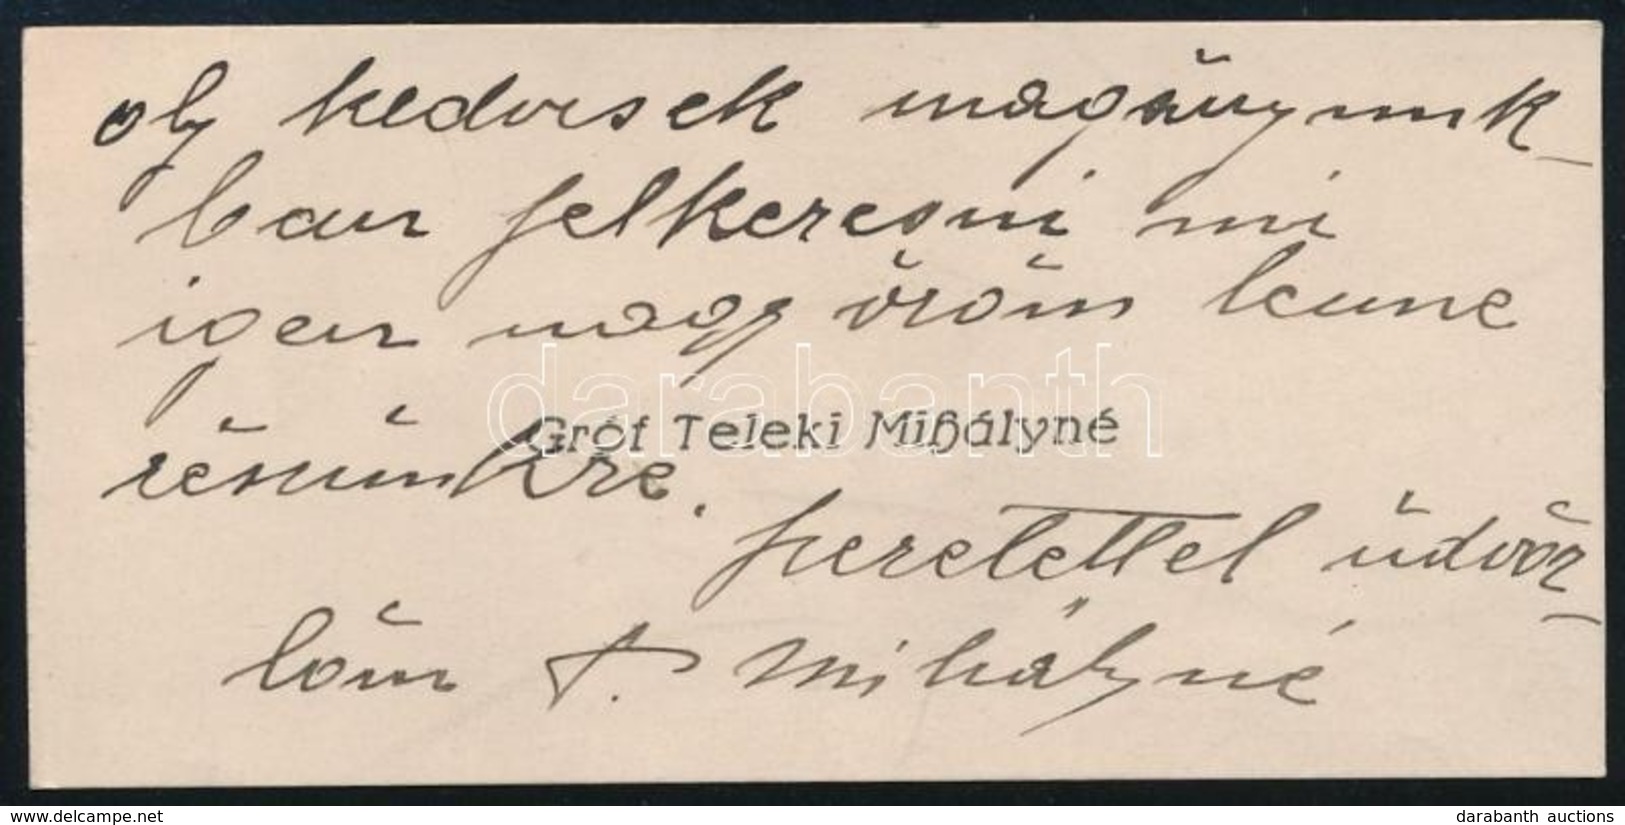 oly kedvesek magányunk-
ban felkeresni mi
igen nagy öröm lenne
Gróf Teleki Mihályné
részünkre.
szeretettel üdvöz-
löm T. Mihályné
darabanth
delcampe.net
darabanth auctions